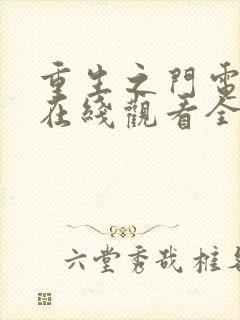 重生之門電
在綫觀看全
六堂秀哉桩